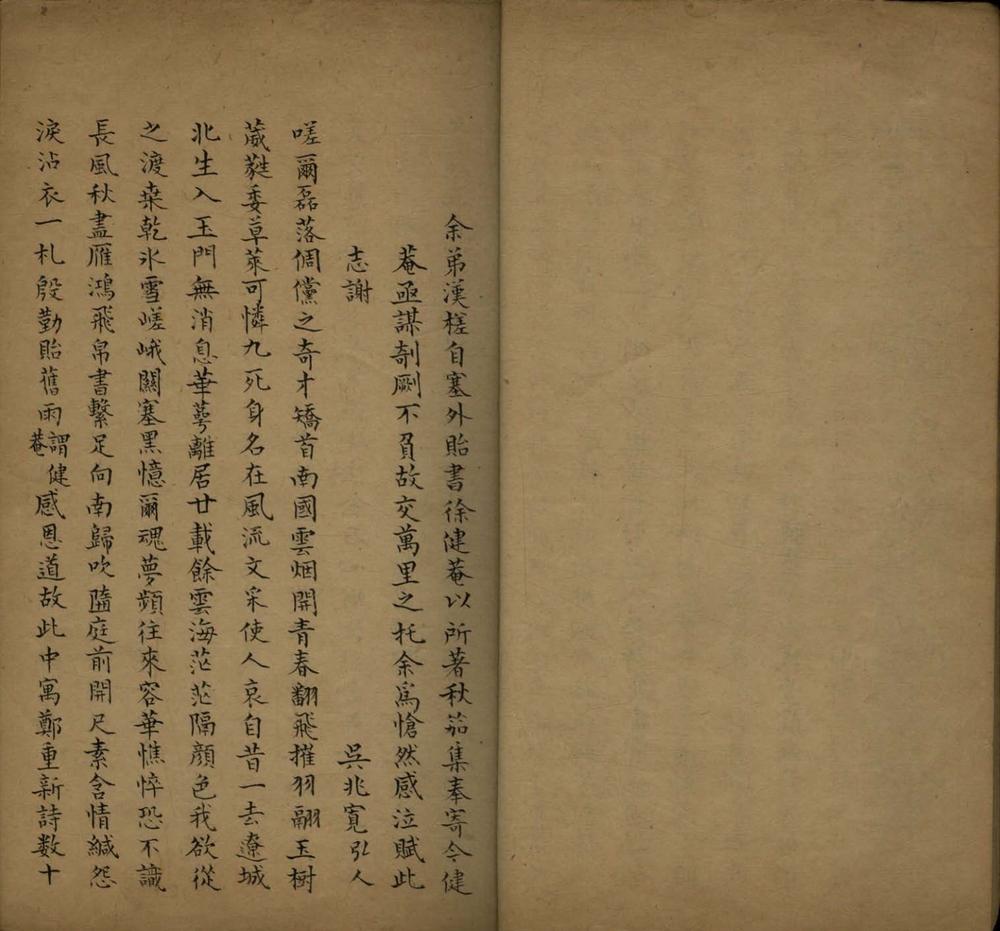 余弟漢槎自塞外貽書徐健菴以所著秋笳集奉寄今健
菴亟謀剞劂不負故交萬里之托余爲愴然感泣賦此
志謝 吳兆寬弘人
嗟爾磊落倜儻之奇才矯首南國雲烟開青春翻飛摧羽翮玉樹
葳蕤委草萊可憐九死身名在風流文采使人哀自昔一去遼城
北生入玉門無消息華萼離居廿載餘雲海茫茫隔顏色我欲從
之渡桒乾氷雪嵯峨關塞黑憶爾魂夢頻往來容華憔悴恐不識
長風秋盡雁鴻飛帛書繫足向南歸吹墮庭前開尺素含情緘怨
淚沾衣一札殷勤貽舊雨謂健菴感恩道故此中寓鄭重新詩数十